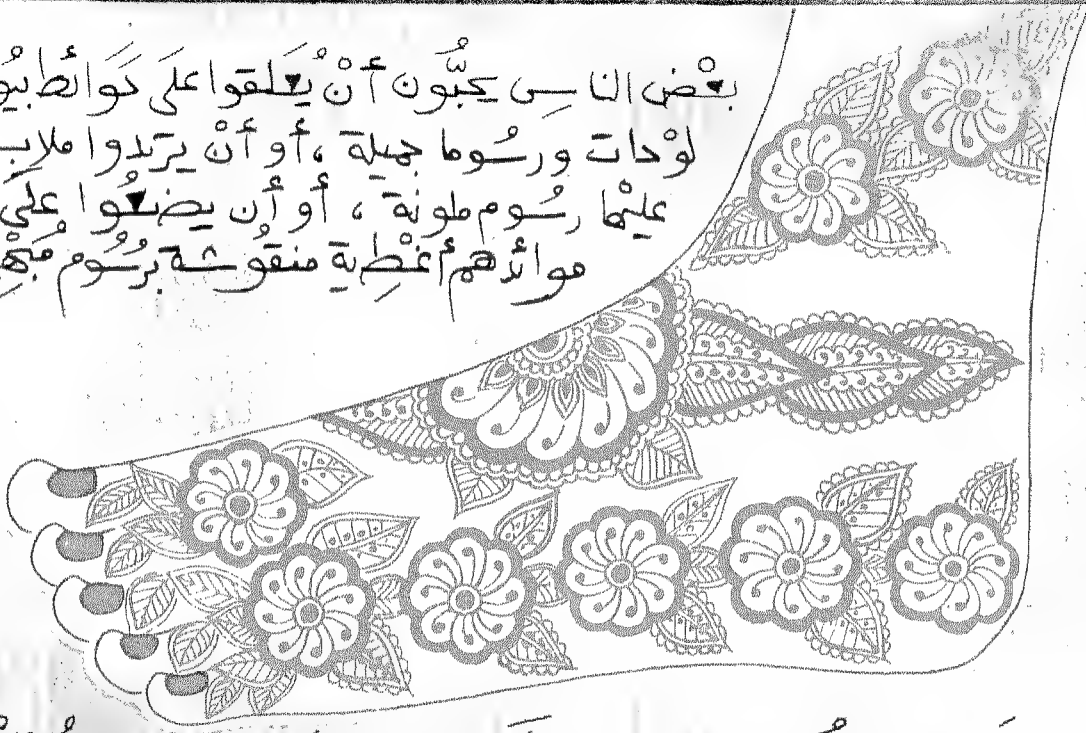 بعْض الناس يحبُّون أنْ يُعَلقوا علَى حَوائط
لوْحات ورسُوما جميلة ، أو أنْ يرتدوا
عليْها رسُوم ملونة ، أو أن يضعُوا علَى
موائدهم أغْطية منقوُشة برُسُوم